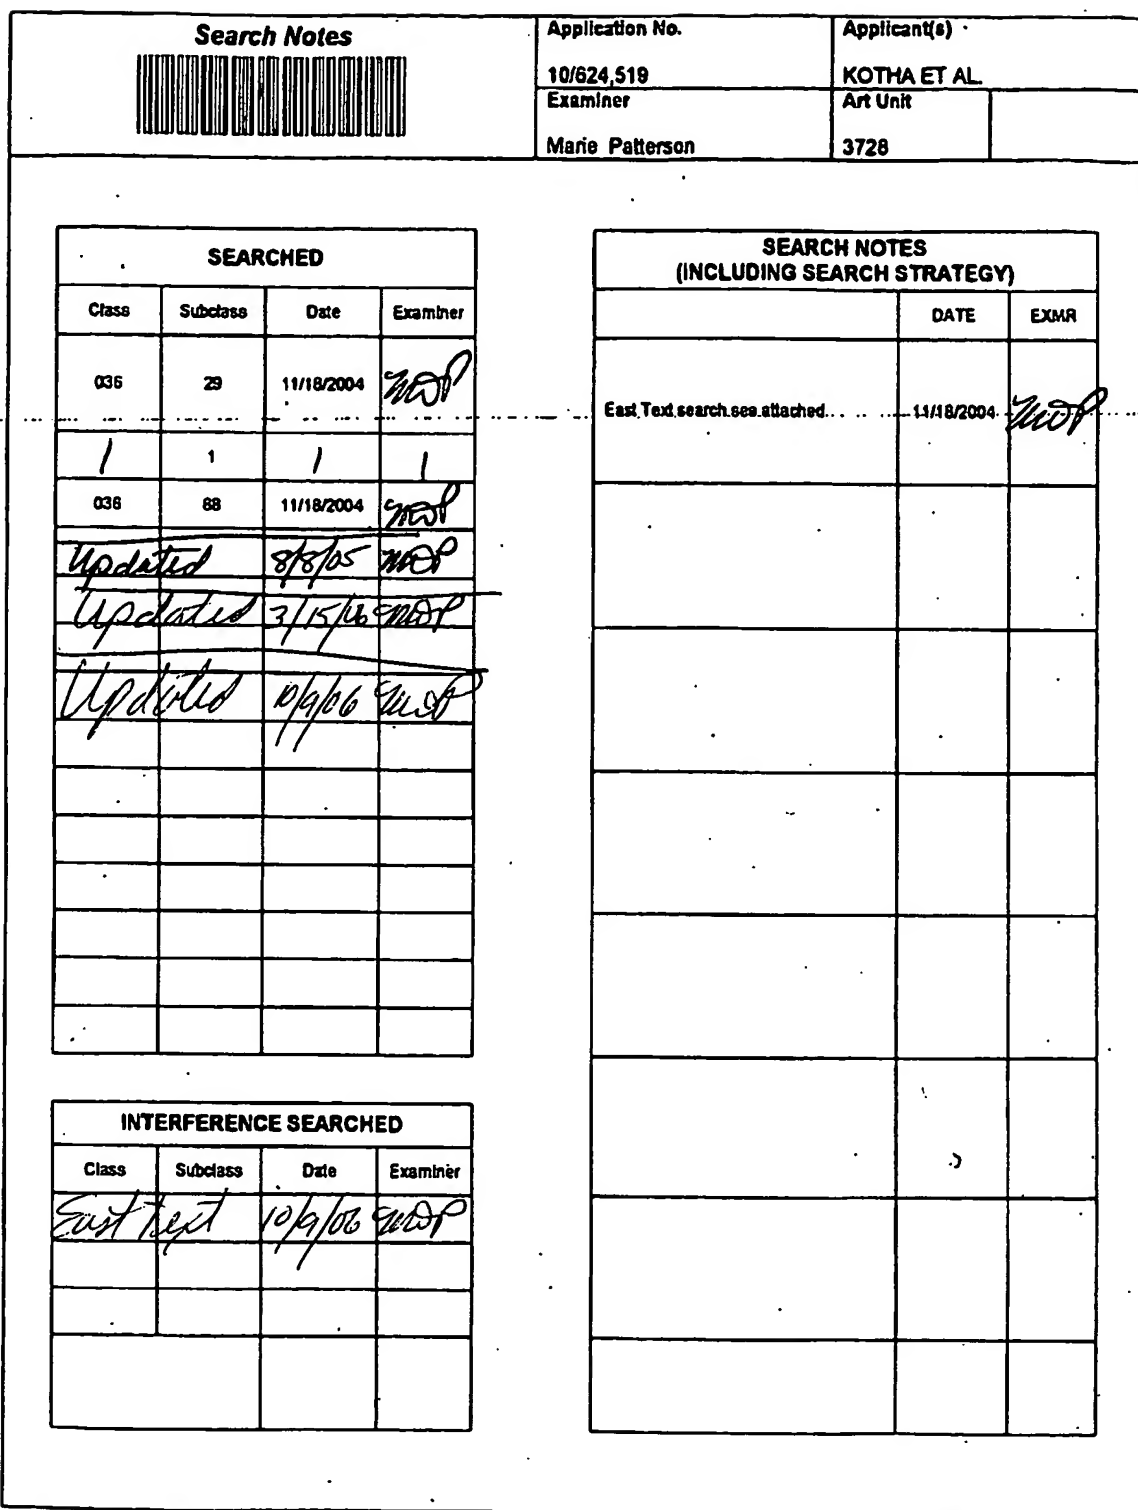 Search Notes
Application No.
Applicant(s)
10/624,519
KOTHA ET AL.
Examiner
Art Unit
Marie Patterson
3728
SEARCHED
Class Subclass Date Examiner
036 29 11/18/2004 MDP
/ 1 / /
036 88 11/18/2004 MDP
Updated 8/8/05 MDP
Updated 3/15/06 MDP
Updated 10/9/06 MDP
INTERFERENCE SEARCHED
Class Subclass Date Examiner
East Text 10/9/06 MDP
SEARCH NOTES
(INCLUDING SEARCH STRATEGY)
DATE EXMR
East Text search see attached 11/18/2004 MDP